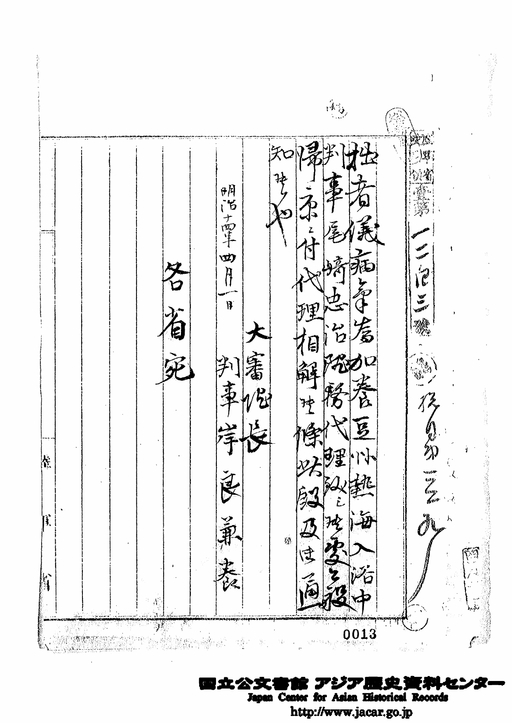 拙者儀病気為加養豆州熱海入浴中
判事尾崎忠治院務代理致候処今般
帰京ニ付代理相解候条此段及御通
知候也
明治十四年四月一日
大審院長
判事岸良兼養
各省宛
陸軍省
0013
国立公文書館 アジア歴史資料センター
Japan Center for Asian Historical Records
http://www.jacar.go.jp